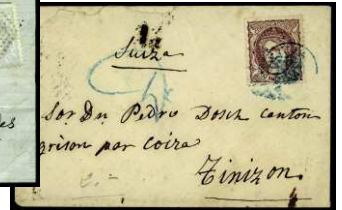 Suiza
Sor Dn Pedro Dosch canton
grison par Coira
Tinizon
es